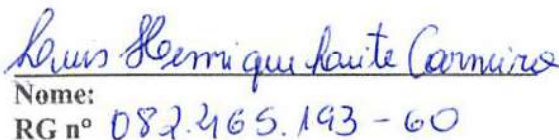 Luis Henrique Leite Carneiro
Nome:
RG nº 082.465.193-60